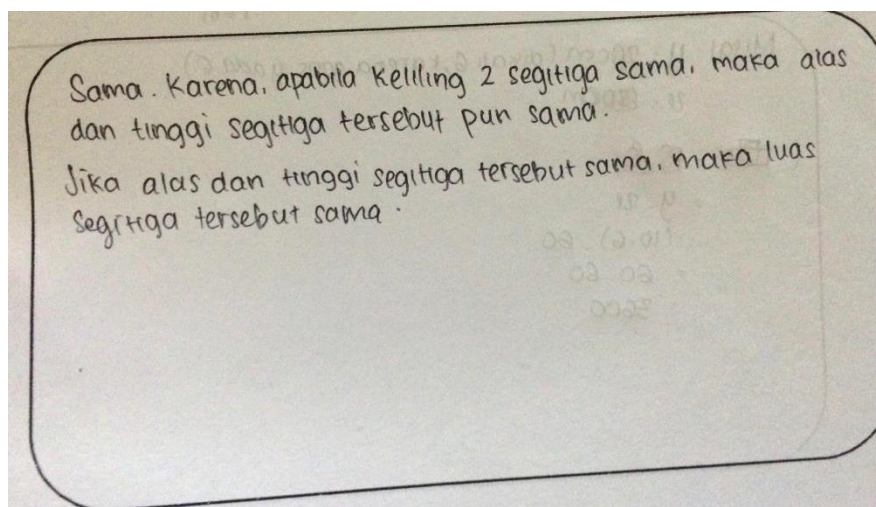 Sama. Karena, apabila keliling 2 segitiga sama, maka alas
dan tinggi segitiga tersebut pun sama.
Jika alas dan tinggi segitiga tersebut sama, maka luas
segitiga tersebut sama.